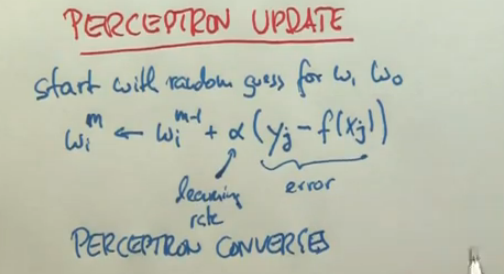 PERCEPTRON UPDATE
start with random guess for w₁ w₀
wᵢᵐ ← wᵢᵐ⁻¹ + α (yⱼ - f(xⱼ))
learning error
rate
PERCEPTRON CONVERGES